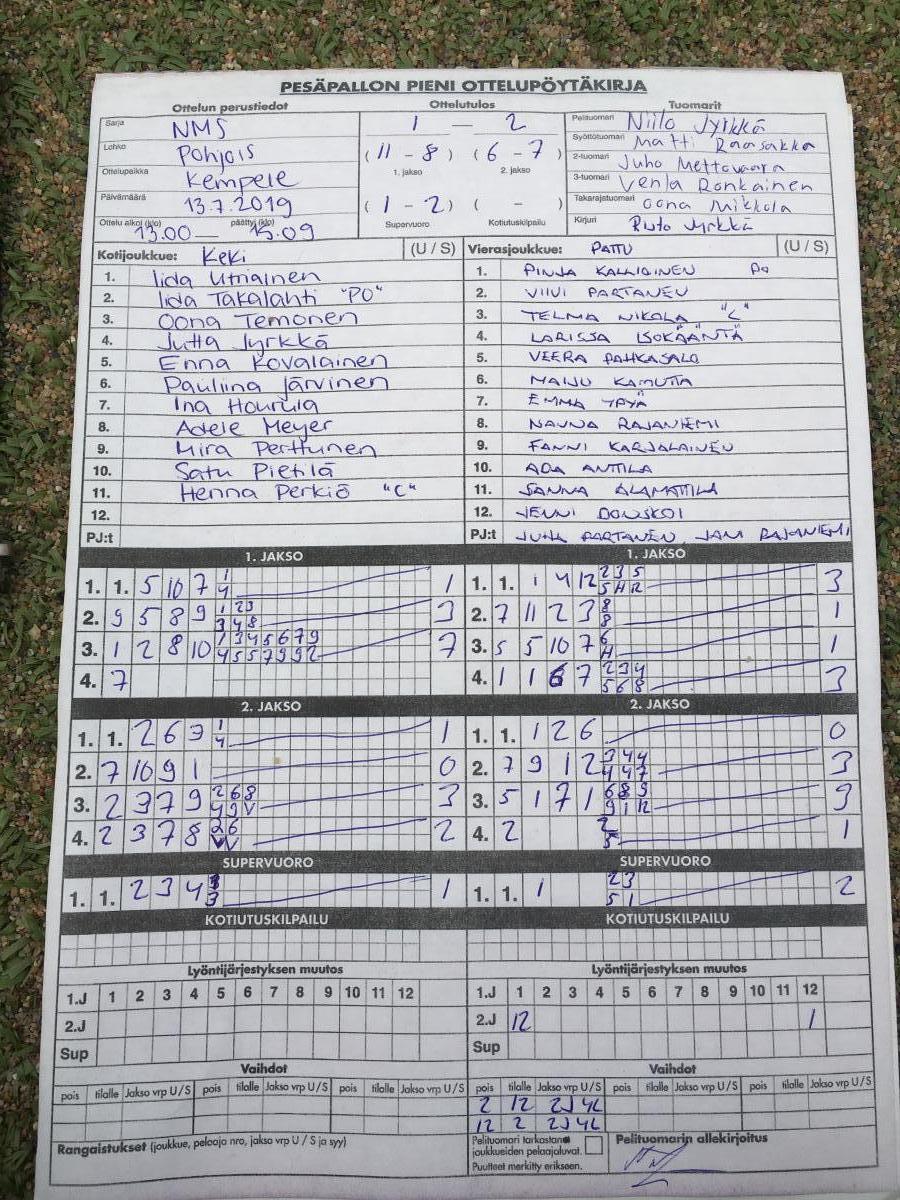 PESÄPALLON PIENI OTTELUPÖYTÄKIRJA
Ottelun perustiedot Ottelutulos Tuomarit
Sarja NMS
Lohko Pohjois
Ottelupaikka Kempele
Päivämäärä 13.7.2019
Ottelu alkoi (klo) päättyi (klo)
13.00 — 15.09
1 — 2
(11 - 8) (6 - 7)
1. jakso 2. jakso
(1 - 2) ( - )
Supervuoro Kotiutuskilpailu
Pelituomari Niilo Jyrkkä
Syöttötuomari Matti Raasakka
2-tuomari Juho Mettovaara
3-tuomari Venla Ronkainen
Takarajatuomari Oona Mikkola
Kirjuri Jyrkkä
Kotijoukkue: Keki (U / S)
1. Iida Utriainen
2. Iida Takalahti "PO"
3. Oona Temonen
4. Jutta Jyrkkä
5. Enna Kovalainen
6. Pauliina Järvinen
7. Ina Hourula
8. Adele Meyer
9. Mira Perttunen
10. Satu Pietilä
11. Henna Perkiö "C"
12.
PJ:t
Vierasjoukkue: PATTU (U / S)
1. PINJA KALLIOINEN Po
2. VIIVI PARTANEN
3. TELMA NIKOLA "C"
4. LARISSA ISOKÄÄNTÄ
5. VEERA PAHKASALO
6. MAIJU KAMUTTA
7. EMMA YPYÄ
8. NANNA RAJANIEMI
9. FANNI KARJALAINEN
10. ADA ANTTILA
11. SANNA ALAMATTILA
12. JENNI DONSKOI
PJ:t JUHA PARTANEN, JANI RAJANIEMI
1. JAKSO
1. 1. 5 10 7 1 4 1
2. 9 5 8 9 1 2 3 3 4 8 3
3. 1 2 8 10 1 3 4 5 6 7 9 4 5 5 7 9 9 2 7
4. 7
1. JAKSO
1. 1. 1 4 12 2 3 5 5 H R 3
2. 7 11 2 3 8 8 1
3. 5 5 10 7 6 H 1
4. 1 1 6 7 2 3 4 5 6 8 3
2. JAKSO
1. 1. 2 6 3 1 4 1
2. 7 10 9 1 0
3. 2 3 7 9 2 6 8 4 9 V 3
4. 2 3 7 8 2 6 V V 2
2. JAKSO
1. 1. 1 2 6 0
2. 7 9 1 12 3 4 4 4 4 7 3
3. 5 1 7 1 6 8 9 9 1 12 3
4. 2 2 5 1
SUPERVUORO
1. 1. 2 3 4 3 3 1
SUPERVUORO
1. 1. 1 2 3 5 1 2
KOTIUTUSKILPAILU
KOTIUTUSKILPAILU
Lyöntijärjestyksen muutos
1.J 1 2 3 4 5 6 7 8 9 10 11 12
2.J
Sup
Lyöntijärjestyksen muutos
1.J 1 2 3 4 5 6 7 8 9 10 11 12
2.J 12 1
Sup
Vaihdot
pois tilalle Jakso vrp U/S pois tilalle Jakso vrp U/S pois tilalle Jakso vrp U/S
Vaihdot
pois tilalle Jakso vrp U/S pois tilalle Jakso vrp U/S pois tilalle Jakso vrp U/S
2 12 2J 4L
12 2 2J 4L
Rangaistukset (joukkue, pelaaja nro, jakso vrp U / S ja syy)
Pelituomari tarkastanut
joukkueiden pelaajaluvat.
Puutteet merkitty erikseen.
Pelituomarin allekirjoitus